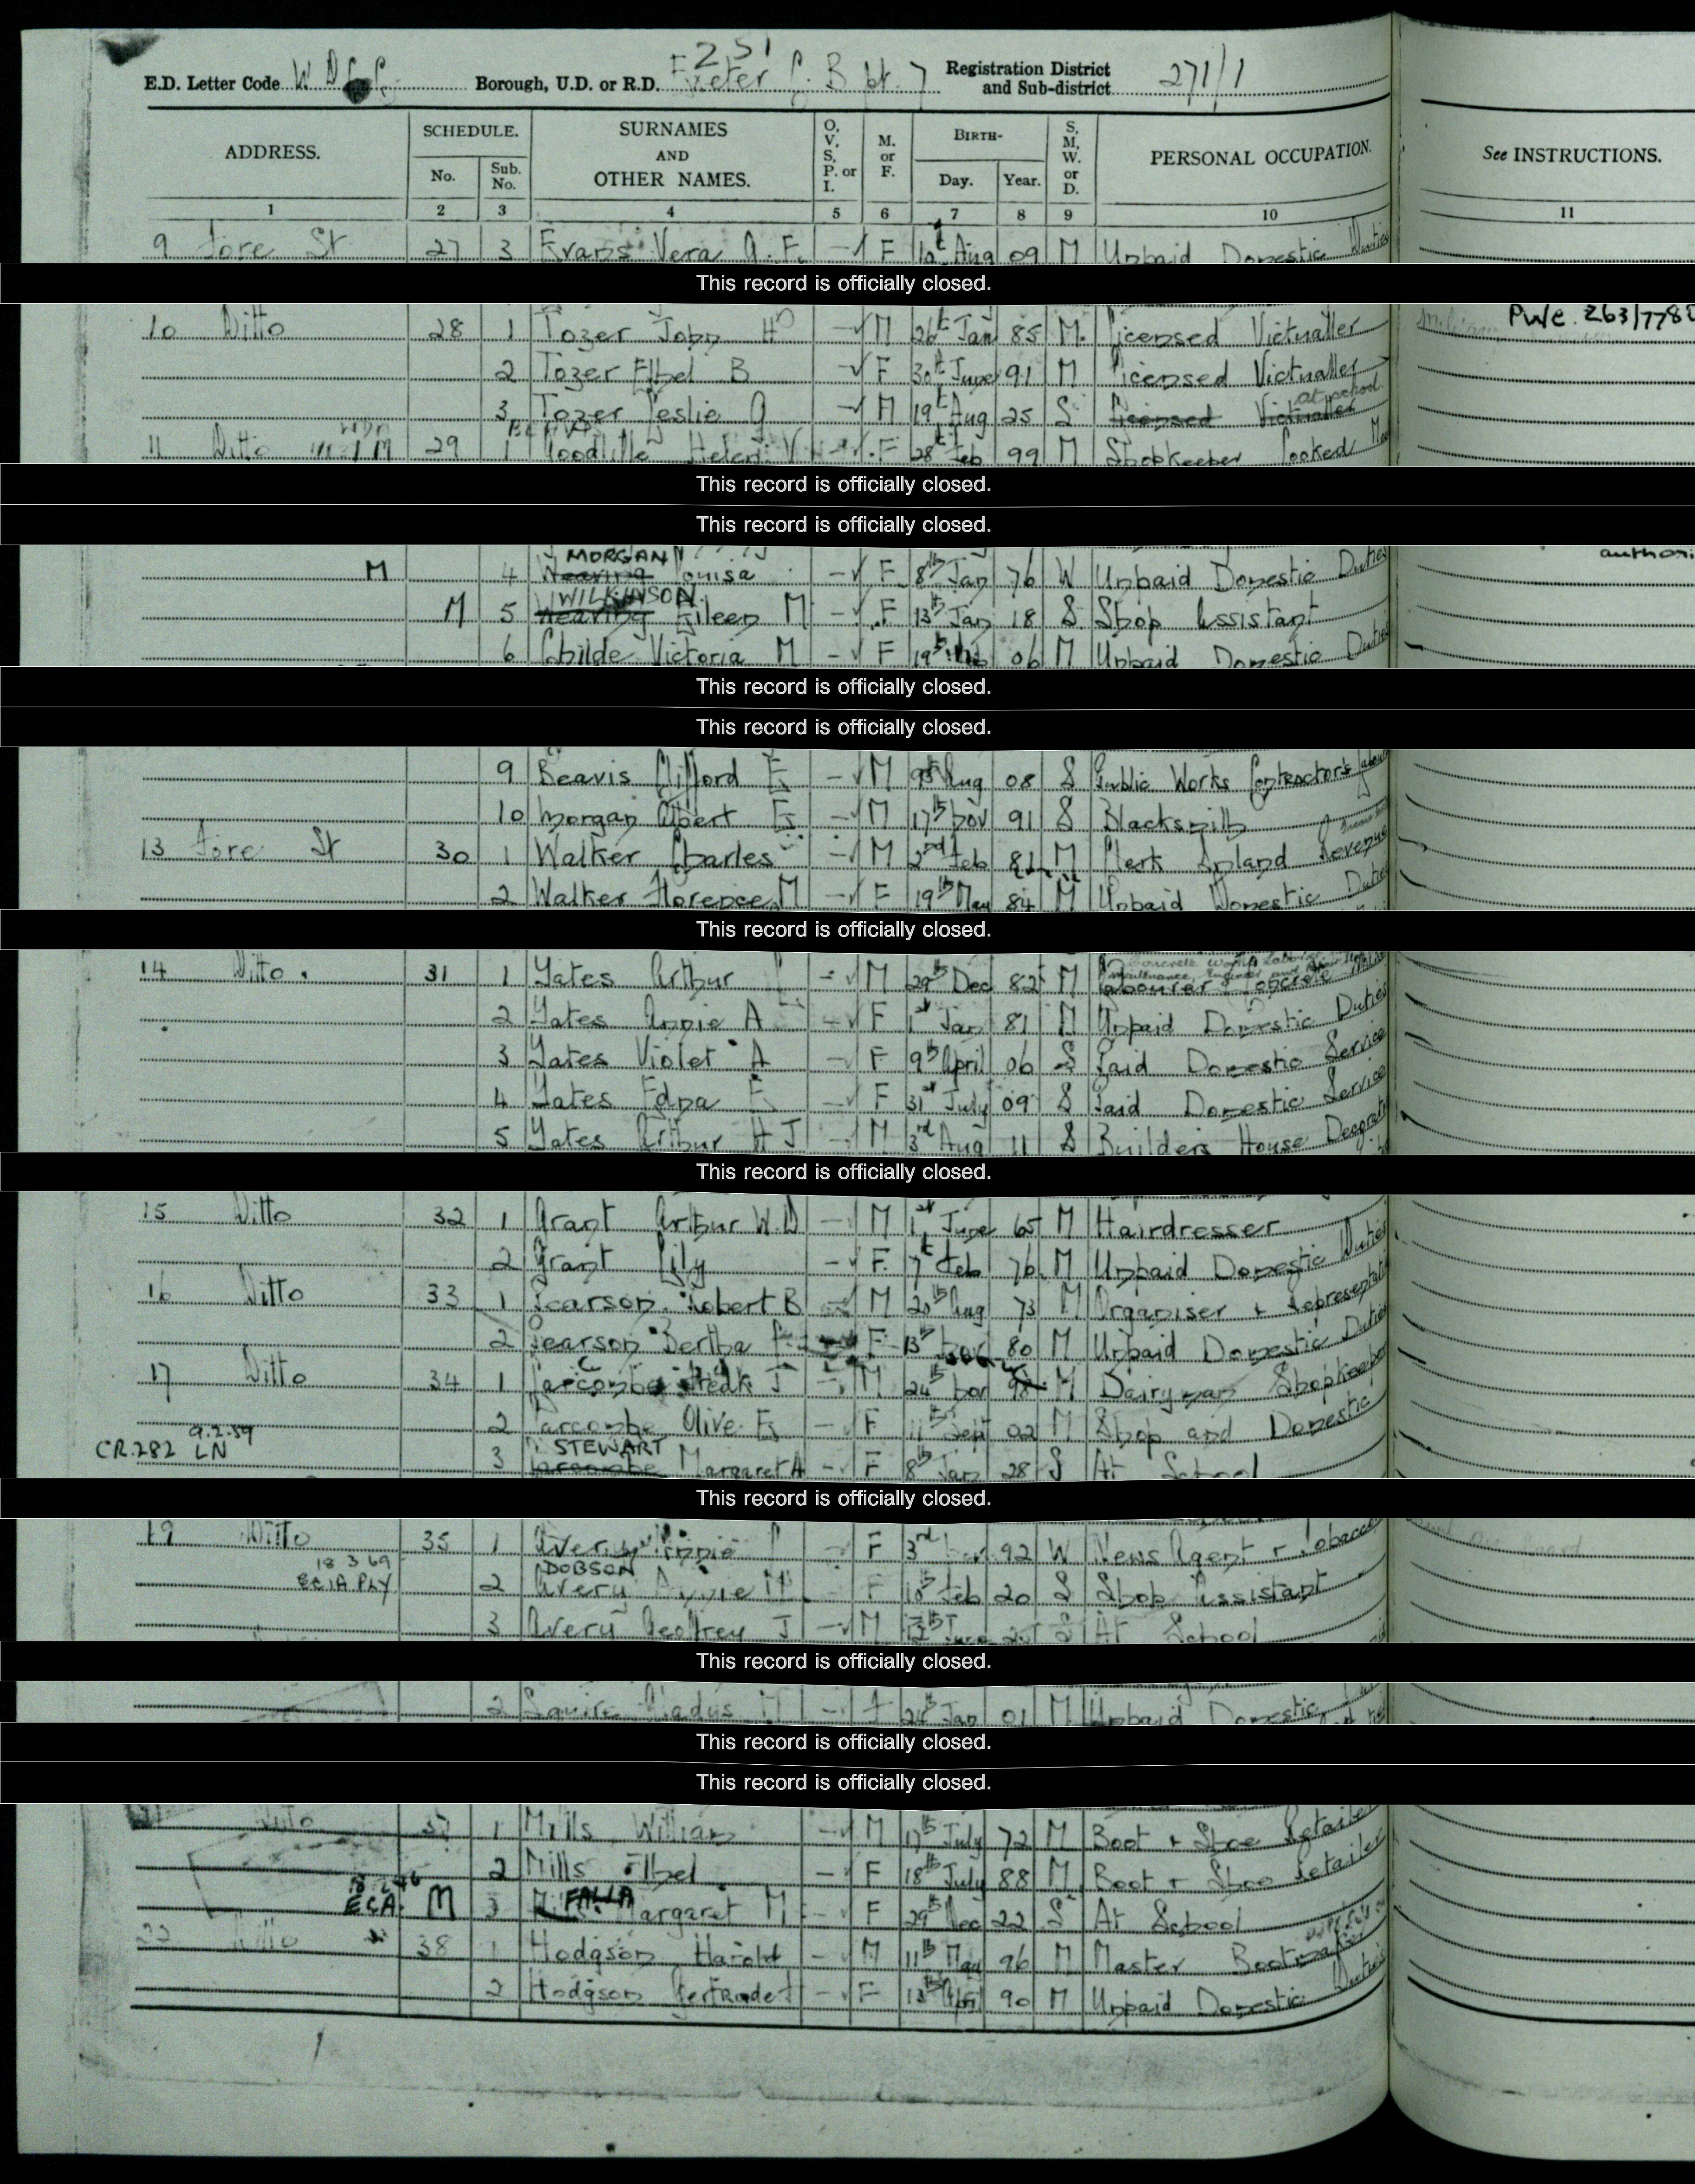 251
E.D. Letter Code W.D.G.C. Borough, U.D. or R.D. Exeter C.B. pt. 7 Registration District and Sub-district 271/1
ADDRESS. SCHEDULE. No. Sub. No. SURNAMES AND OTHER NAMES. O. V. S. P. or I. M. or F. BIRTH- Day. Year. S. M. W. or D. PERSONAL OCCUPATION. See INSTRUCTIONS.
1 2 3 4 5 6 7 8 9 10 11
9 Fore St 27 3 Evans Vera A. F. - F Aug 09 M Unpaid Domestic Duties
This record is officially closed.
10 Ditto 28 1 Tozer John H - M 26t Jan 85 M. Licensed Victualler PWE. 263/778
2 Tozer Ethel B - F 30t June 91 M Licensed Victualler
at school
3 Tozer Leslie G - M 19t Aug 25 S Licensed Victualler
11 Ditto 29 1 Helen V - F 28t Feb 99 M Shopkeeper Cooked
This record is officially closed.
This record is officially closed.
MORGAN authori
M 4 Louisa - F 8th Jan 76 W Unpaid Domestic Duties
WILKINSON
M 5 Eileen M - F 13th Jan 18 S Shop Assistant
6 Childe Victoria M - F 19th 06 M Unpaid Domestic Duties
This record is officially closed.
This record is officially closed.
9 Beavis Clifford E - M 9th Aug 08 S Public Works Contractors labour
10 Morgan Albert E - M 17th Nov 91 S Blacksmith
13 Fore St 30 1 Walker Charles - M 2nd Feb 81 M Clerk Inland Revenue
2 Walker Florence M - F 19th May 84 M Unpaid Domestic Duties
This record is officially closed.
14 Ditto 31 1 Yates Arthur - M 29th Dec 82 M Labourer Concrete
2 Yates Annie A - F 1st Jan 81 M Unpaid Domestic Duties
3 Yates Violet A - F 9th April 06 S Paid Domestic Service
4 Yates Edna E - F 31st July 09 S Paid Domestic Service
5 Yates Arthur H J - M 3rd Aug 11 S Builders House Decorator
This record is officially closed.
15 Ditto 32 1 Grant Arthur W.D - M 1st June 65 M Hairdresser
2 Grant Lily - F. 7t Feb 76 M Unpaid Domestic Duties
16 Ditto 33 1 Pearson Robert B - M 20th Aug 73 M Organiser + Representati
2 Pearson Bertha - F 13th Nov 80 M Unpaid Domestic Duties
17 Ditto 34 1 Larcombe Fredk J - M 24th Nov 98 M Dairyman Shopkeeper
2 Larcombe Olive E - F 11th Sept 02 M Shop and Domestic
9.2.59 STEWART
CR.282 LN 3 Larcombe Margaret A - F 8th Jan 28 S At School
This record is officially closed.
19 Ditto 35 1 Avery Winnie - F 3rd 92 W News Agent + Tobacco
18 3 69 DOBSON
ECIA PLY 2 Avery M F 18th Feb 20 S Shop Assistant
3 Avery Geoffrey J - M 12th June S At School
This record is officially closed.
2 Squire Gladys M - F 24th Jan 01 M Unpaid Domestic
This record is officially closed.
This record is officially closed.
Ditto 37 1 Mills William - M 17th July 72 M Boot + Shoe Retailer
2 Mills Ethel - F 18th July 88 M Boot + Shoe Retailer
ECA M 3 FALLA Margaret M - F 29th Dec 22 S At School
22 Ditto 38 1 Hodgson Harold - M 11th May 96 M Master Bootmaker
2 Hodgson Gertrude - F 13th 90 M Unpaid Domestic Duties